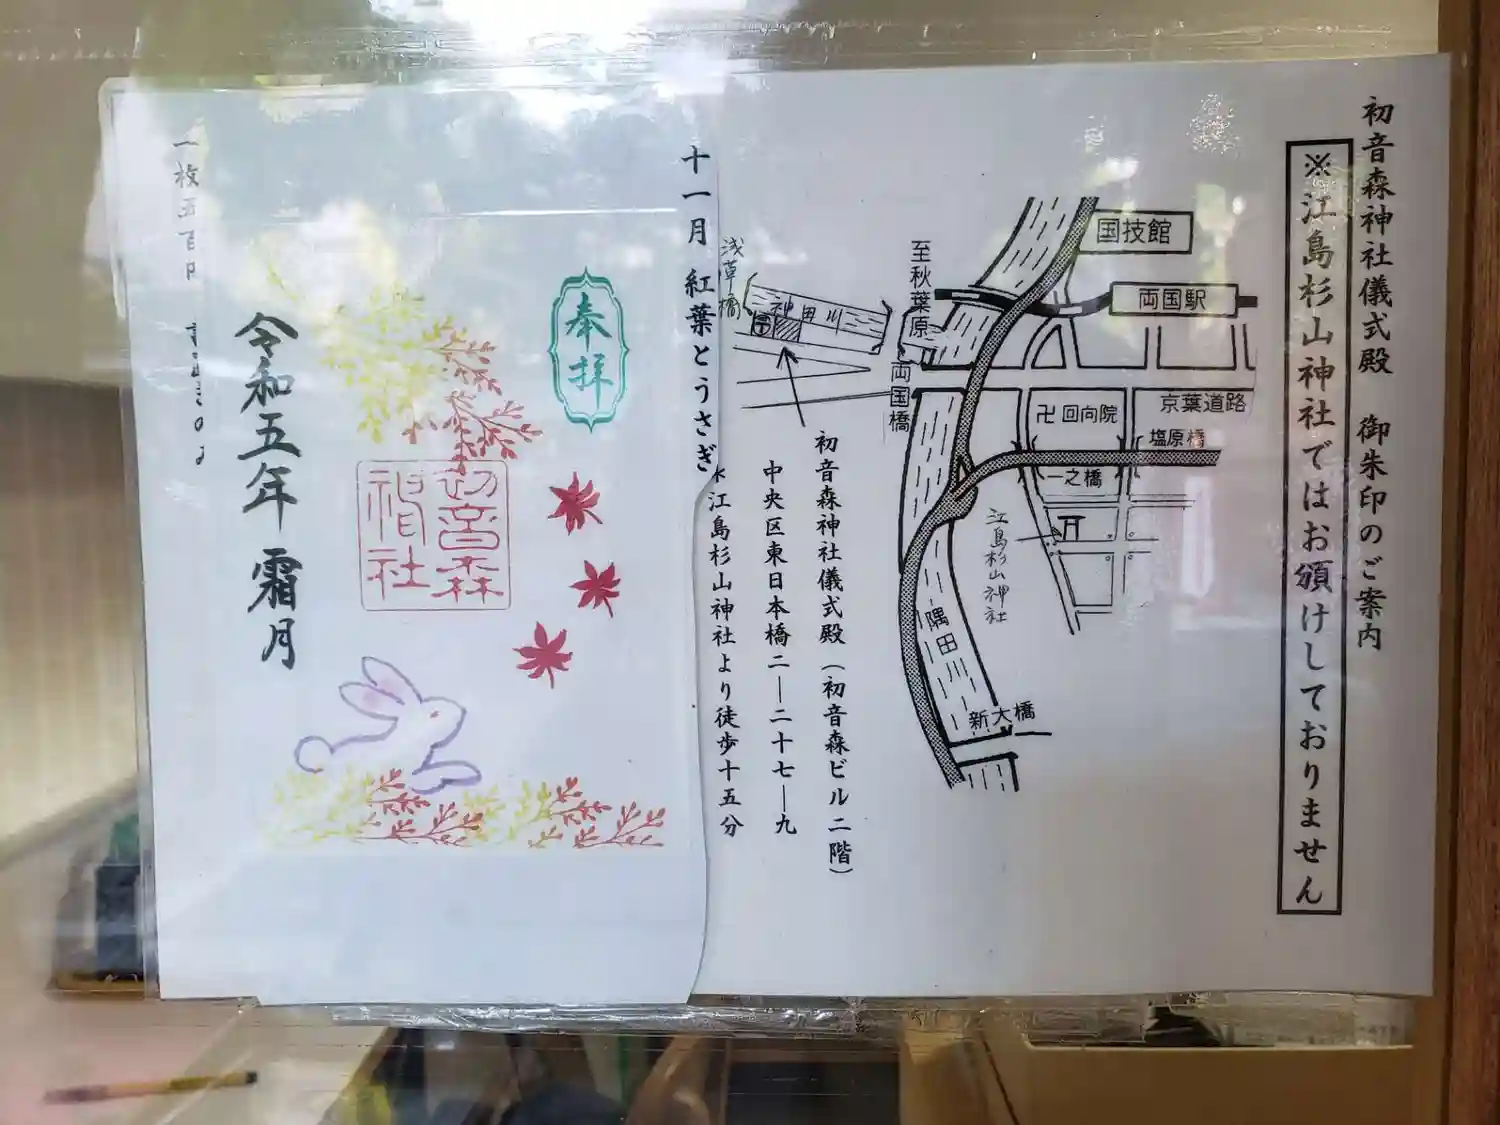 初音森神社儀式殿 御朱印のご案内
※江島杉山神社ではお頒けしておりません
国技館
両国駅
至秋葉原
浅草橋
神田川
両国橋
京葉道路
卍回向院
塩原橋
一之橋
江島杉山神社
隅田
新大橋
初音森神社儀式殿(初音森ビル二階)
中央区東日本橋二―二十七―九
江島杉山神社より徒歩十五分
十一月 紅葉とうさぎ
奉拝
初音森
神社
令和五年 霜月
一枚五百円